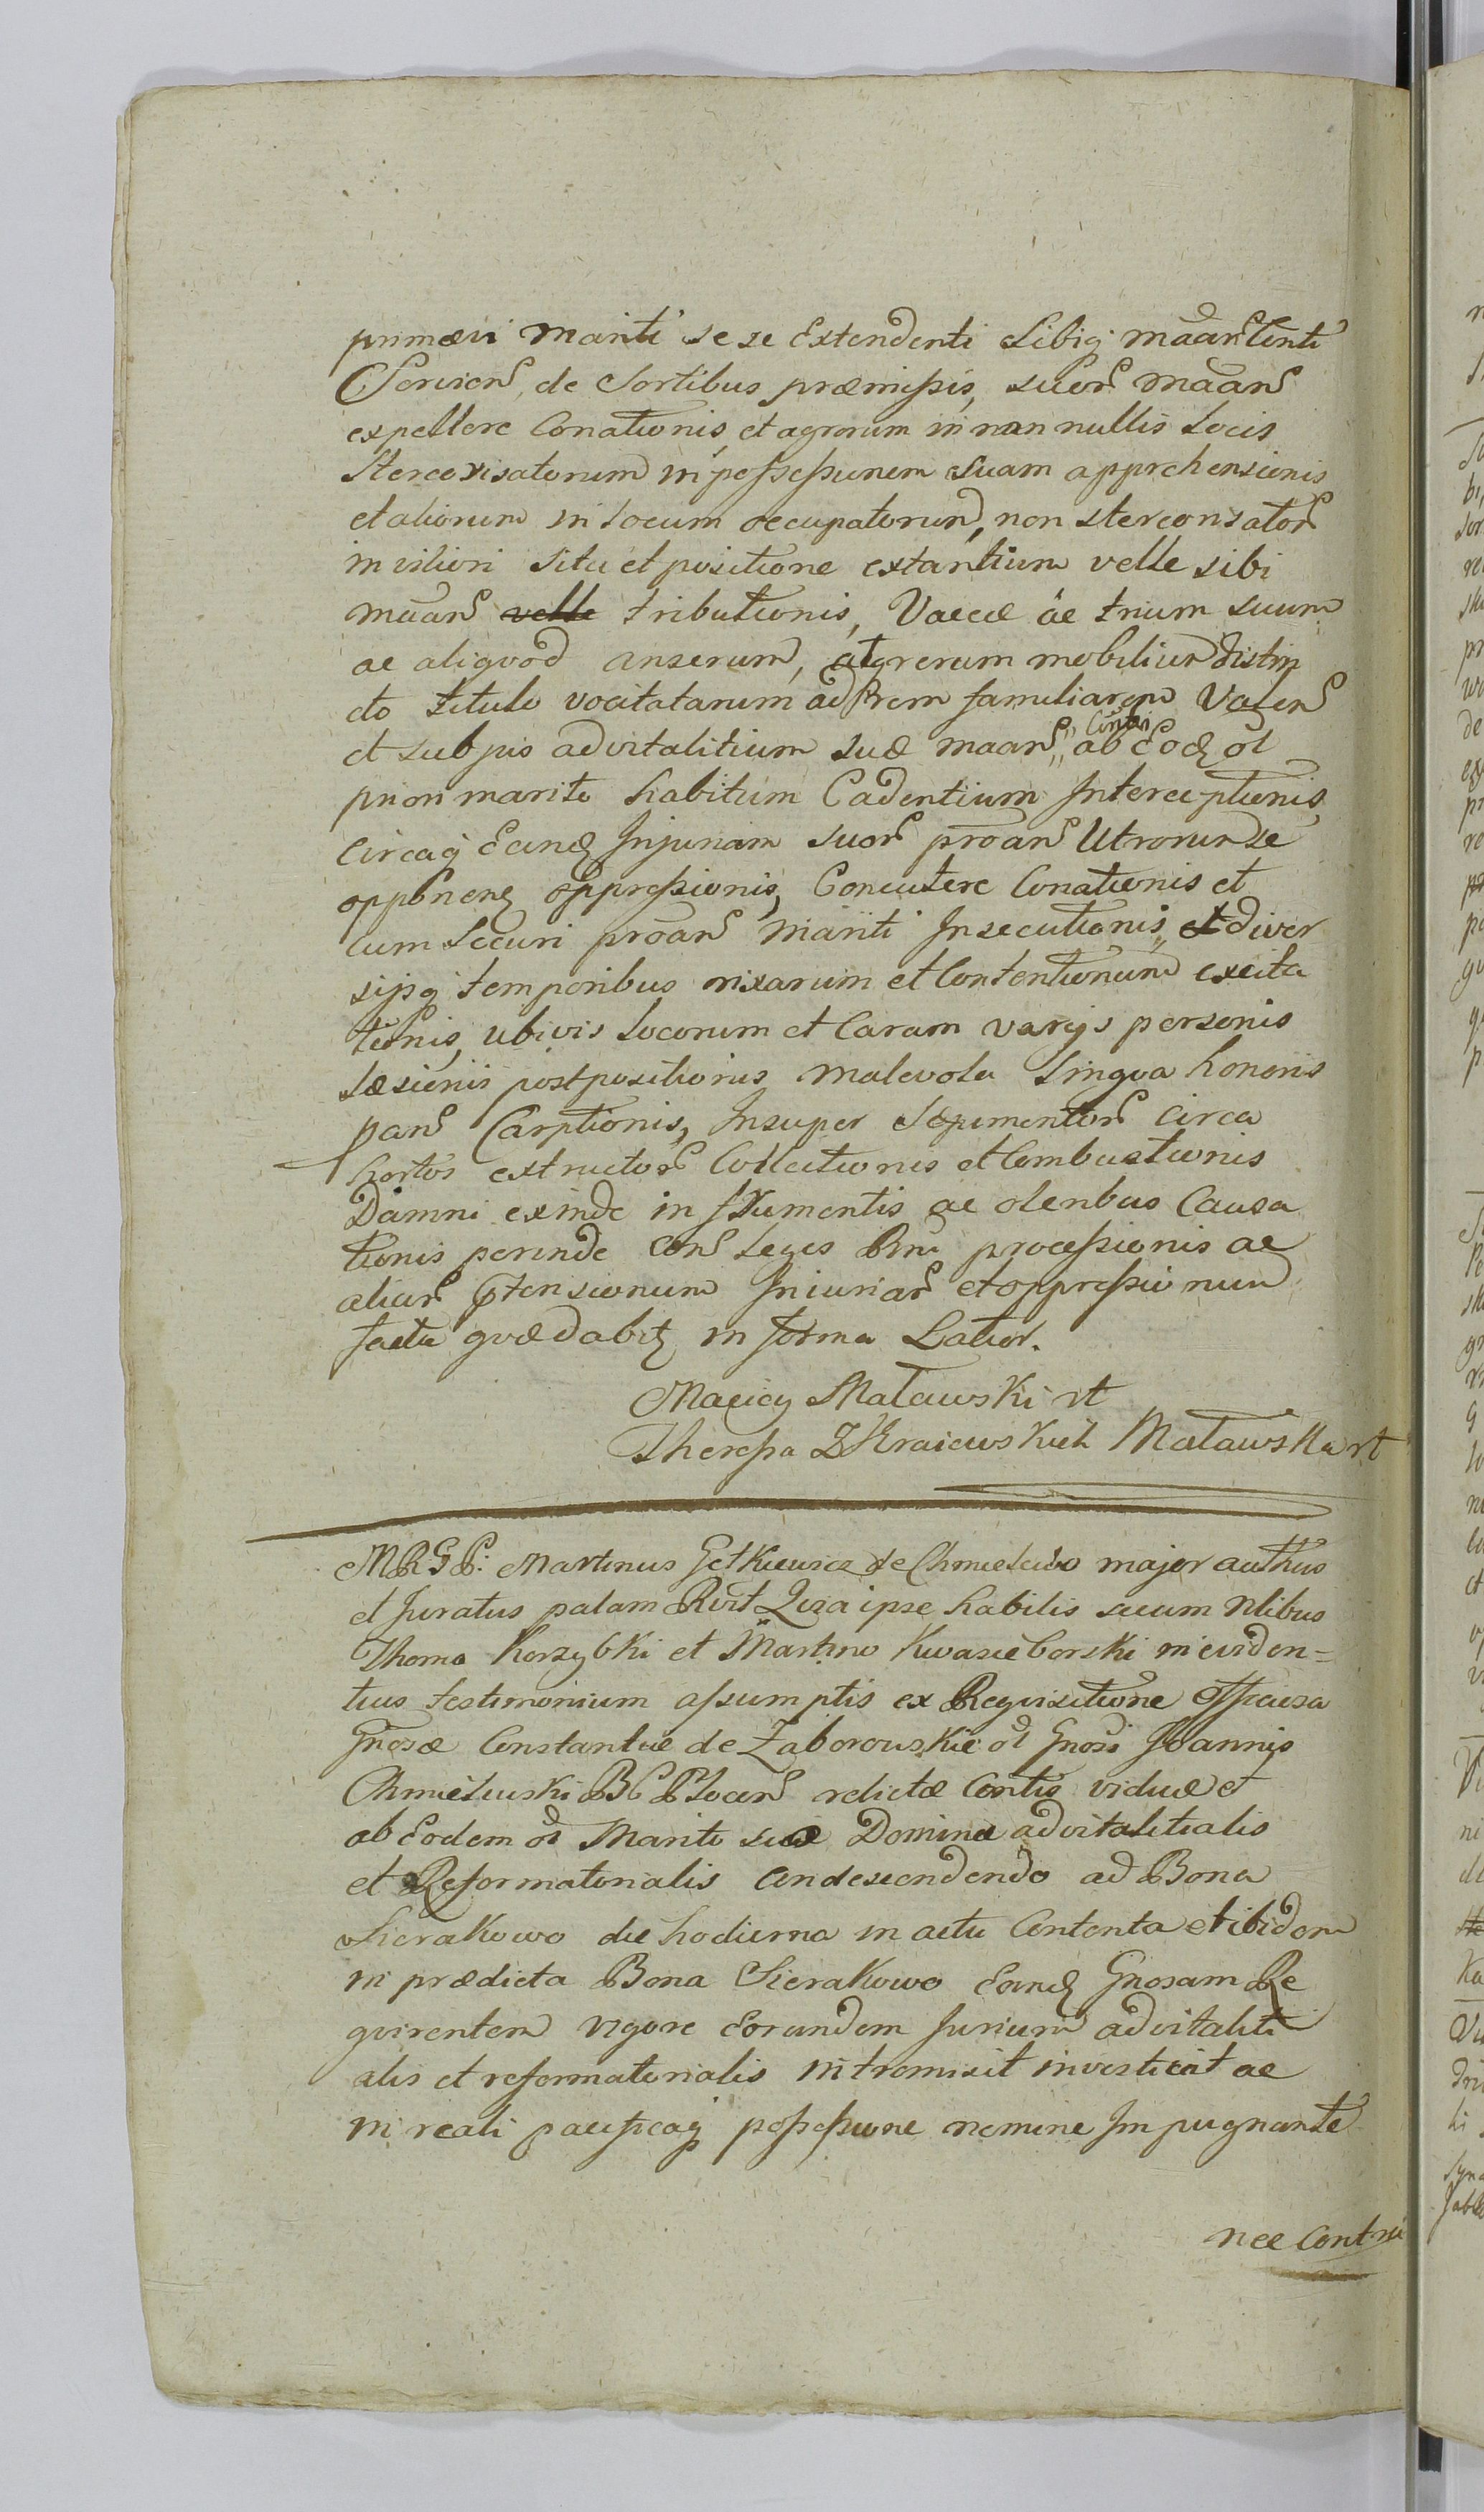 primævi Mariti se se Extendenti Sibiq maãn tenti
Servien de Sortibus præmissis, suor maãn
expellere Conationis, et agrorum in non nullis Locis
Stercorisatorum in possessionem suam apprehensionis
et aliorum in Locum occupatorum, non stercorisator
in viliori situ et positione extantium velle sibi
maãn velle tributionis, Vaccæ ac trium suum
ac aliqvod anserum, atq rerum mobilium distin
cto titulo vocitatarum ad Rem familiarem Valen
et sub jus advitalitium suæ maan ab Eod ol
Coniu
priori marito habitum Cadentium Interceptionis
Circaq Eand Injuriam suor proãn Utrorum se
opponen oppressionis, Concutere Conationis et
cum Securi proãn Mariti Insecutionis, et diver
sisq temporibus rixarum et Contentionum excita
tionis, ubivis Locorum et Coram varijs personis
Læsionis postpositionis malevola Lingva honoris
pan Carptionis, Insuper Sepimentor Circa
hortos extructor Collectionis et Combustionis
Damni exinde in frumentis ac oleribus Causa
tionis perinde Con Leges processionis ac
aliar Ptensionum Iniuriar et oppressionum
facta qvæ dabit in forma Latior.
Maciey Maławski rt
Theressa Z Kraiewskich Maławska rt
MRGP: Martinus Getkiewicz de Chmielewo major authus
et Juratus palam Rvit Qvia ipse habitis secum Nlibus
Thoma Korzybski et Martino Kwasieborski in eviden=
tius testimonium assumptis ex Reqvisitione
Gnosæ Constantiæ de Zaborowskie ol Gnosi Joannis
Chmielewski BC Plocen relictæ Contis viduæ et
ab Eodem ol Marito suæ Dominæ advitalitialis
et Reformatorialis Condescendendo ad Bona
Sierakowo die hodierna in actu Contenta et ibidem
in prædicta Bona Sierakowo Eand Gnosam Re
qvirentem vigore Eorundem Jurium advitaliti
alis et reformatorialis intromisit investivit ac
in reali pacificaq possessione nemine Impugnante
nec Contra